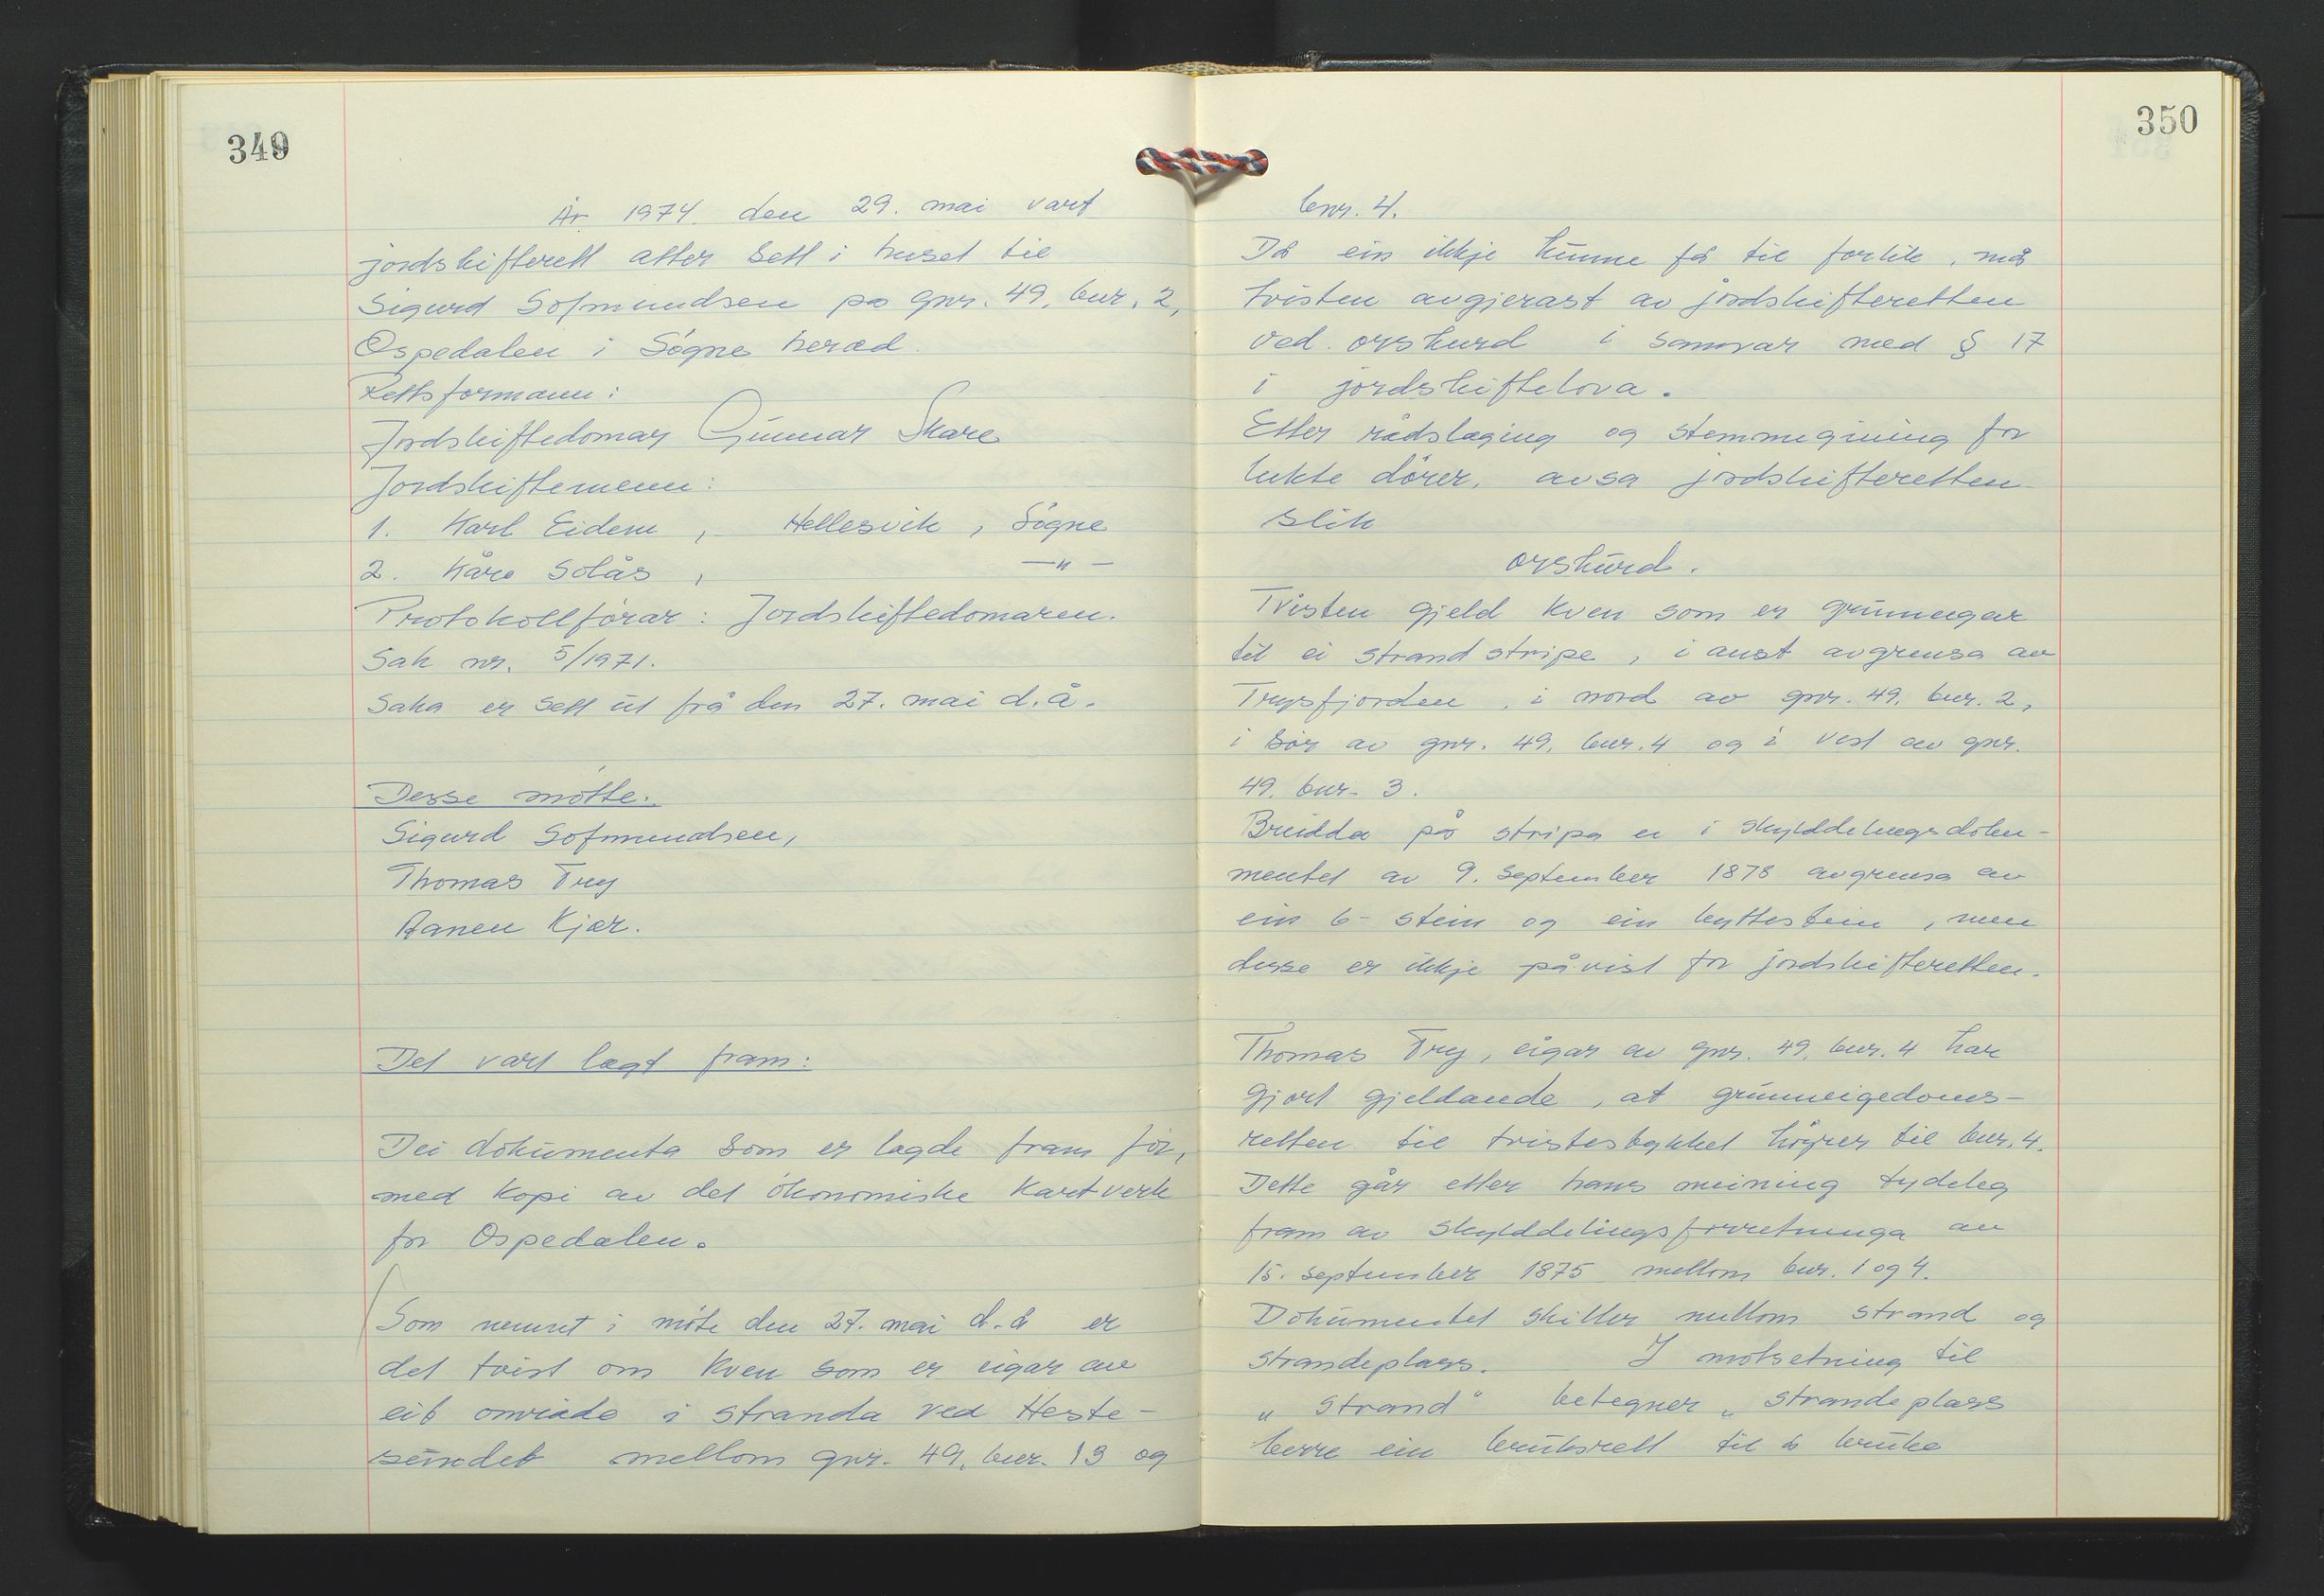 349
År 1974 den 29. mai vart
jordskifterett atter sett i huset til
Sigurd Sofmundsen på gnr. 49, bnr. 2,
Ospedalen i Søgne herad.
Rettsformann:
Jordskiftedomar Gunnar Skare
Jordskiftemenn:
1. Karl Eidem, Hellesvik, Søgne
2. Kåre Solås, —"—
Protokollførar: Jordskiftedomaren.
Sak nr. 5/1971.
Saka er sett ut frå den 27. mai d.å.
Desse møtte:
Sigurd Sofmundsen,
Thomas Try
Aanen Kjær.
Det vart lagt fram:
Dei dokumenta som er lagde fram før,
med kopi av det økonomiske kartverk
for Ospedalen.
Som nemnt i møte den 27. mai d.å er
det tvist om kven som er eigar av
eit område i stranda ved Heste-
sundet mellom gnr. 49, bnr. 13 og
350
bnr. 4.
Då ein ikkje kunne få til forlik, må
tvisten avgjerast av jordskifteretten
ved orskurd i samsvar med § 17
i jordskiftelova.
Etter rådslaging og stemmegiving for
lukte dører, avsa jordskifteretten
slik
orskurd.
Tvisten gjeld kven som er grunneigar
til ei strandstripe, i aust avgrensa av
Trysfjorden, i nord av gnr. 49, bnr. 2,
i sør av gnr. 49, bnr. 4 og i vest av gnr.
49, bnr. 3.
Breidda på stripa er i skylddelingsdoku-
mentet av 9. september 1878 avgrensa av
ein b-stein og ein byttestein, men
desse er ikkje påvist for jordskifteretten.
Thomas Try, eigar av gnr. 49, bnr. 4 har
gjort gjeldande, at grunneigedoms-
retten til tvistestykket høyrer til bnr. 4.
Dette går etter hans meining tydeleg
fram av skylddelingsforretninga av
15. september 1875 mellom bnr. 1 og 4.
Dokumentet skiller mellom strand og
strandeplass. I motsetning til
„strand" betegner „strandeplass
berre ein bruksrett til å bruke